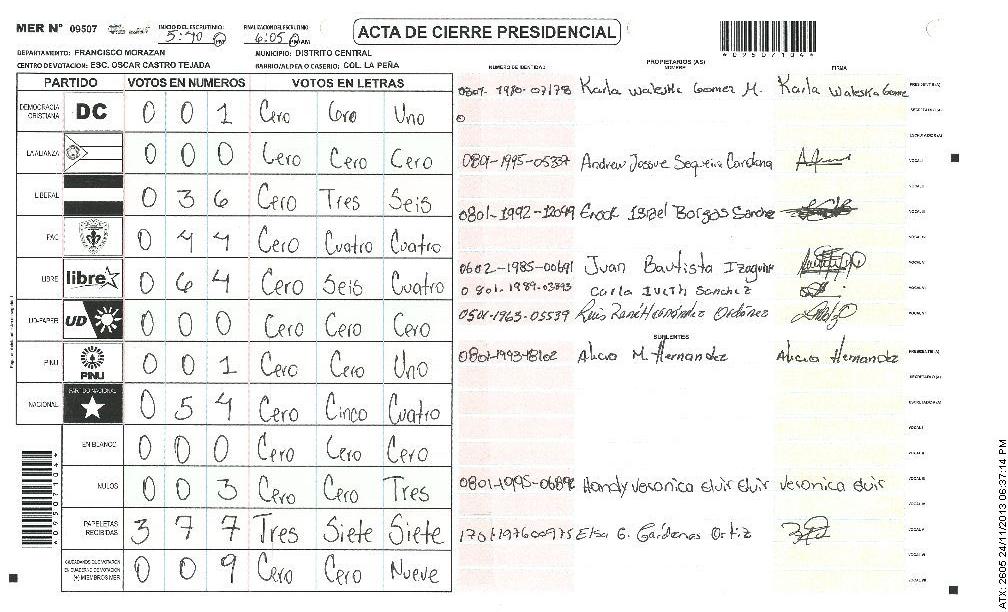 MER Nº 09507 INICIO DEL ESCRUTINIO: 5:40 PM FINALIZACION DEL ESCRUTINIO: 6:05 AM
ACTA DE CIERRE PRESIDENCIAL
*09507104*
DEPARTAMENTO: FRANCISCO MORAZAN MUNICIPIO: DISTRITO CENTRAL
CENTRO DE VOTACION: ESC. OSCAR CASTRO TEJADA BARRIO/ALDEA O CASERIO: COL. LA PEÑA
PROPIETARIOS (AS)
NUMERO DE IDENTIDAD NOMBRE FIRMA
PARTIDO VOTOS EN NUMEROS VOTOS EN LETRAS
DEMOCRACIA CRISTIANA DC 0 0 1 Cero Cero Uno
LA ALIANZA 0 0 0 Cero Cero Cero
LIBERAL 0 3 6 Cero Tres Seis
PAC 0 4 4 Cero Cuatro Cuatro
LIBRE libre 0 6 4 Cero Seis Cuatro
UD-FAPER UD 0 0 0 Cero Cero Cero
PINU PINU 0 0 1 Cero Cero Uno
NACIONAL PARTIDO NACIONAL 0 5 4 Cero Cinco Cuatro
EN BLANCO 0 0 0 Cero Cero Cero
NULOS 0 0 3 Cero Cero Tres
PAPELETAS RECIBIDAS 3 7 7 Tres Siete Siete
CIUDADANOS QUE VOTARON EN CUADERNO DE VOTACION (+) MIEMBROS MER 0 0 9 Cero Cero Nueve
0801-1980-07178 Karla Waleska Gomez M. Karla Waleska Gome PRESIDENTE (A)
SECRETARIO (A)
ESCRUTADOR (A)
0801-1995-05337 Andrew Josue Sequeira Cardona VOCAL I
VOCAL II
0801-1992-12049 Enock Israel Borgas Sanche VOCAL III
VOCAL IV
0602-1985-00691 Juan Bautista Izaguirre VOCAL V
0801-1989-03893 Carla Iveth Sanchez VOCAL VI
0501-1963-05539 Luis René Hernández Ordoñez
SUPLENTES
0801-1993-18102 Alicia M. Hernandez Alicia Hernandez PRESIDENTE (A)
SECRETARIO (A)
ESCRUTADOR (A)
VOCAL I
VOCAL II
0801-1995-06892 Handy Veronica Elvir Elvir Veronica Elvir VOCAL III
VOCAL IV
1701197600975 Elsa G. Cárdenas Ortiz VOCAL V
VOCAL VI
VOCAL VII
*09507104*
ATX: 2605 24/11/2013 06:37:14 PM